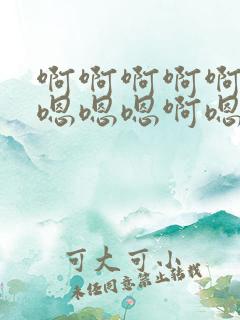 啊啊啊啊啊
嗯嗯嗯啊嗯
可大可小
未经同意禁止转载